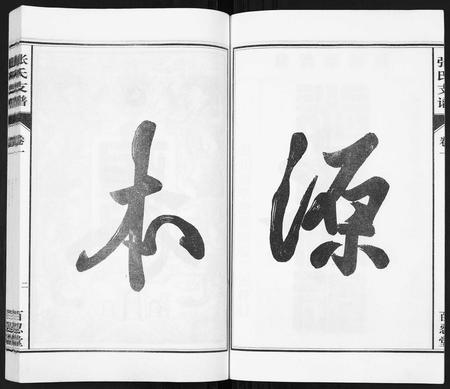 張氏支譜
卷一
百忍堂
源
本
張氏支譜
卷一
二
百忍堂